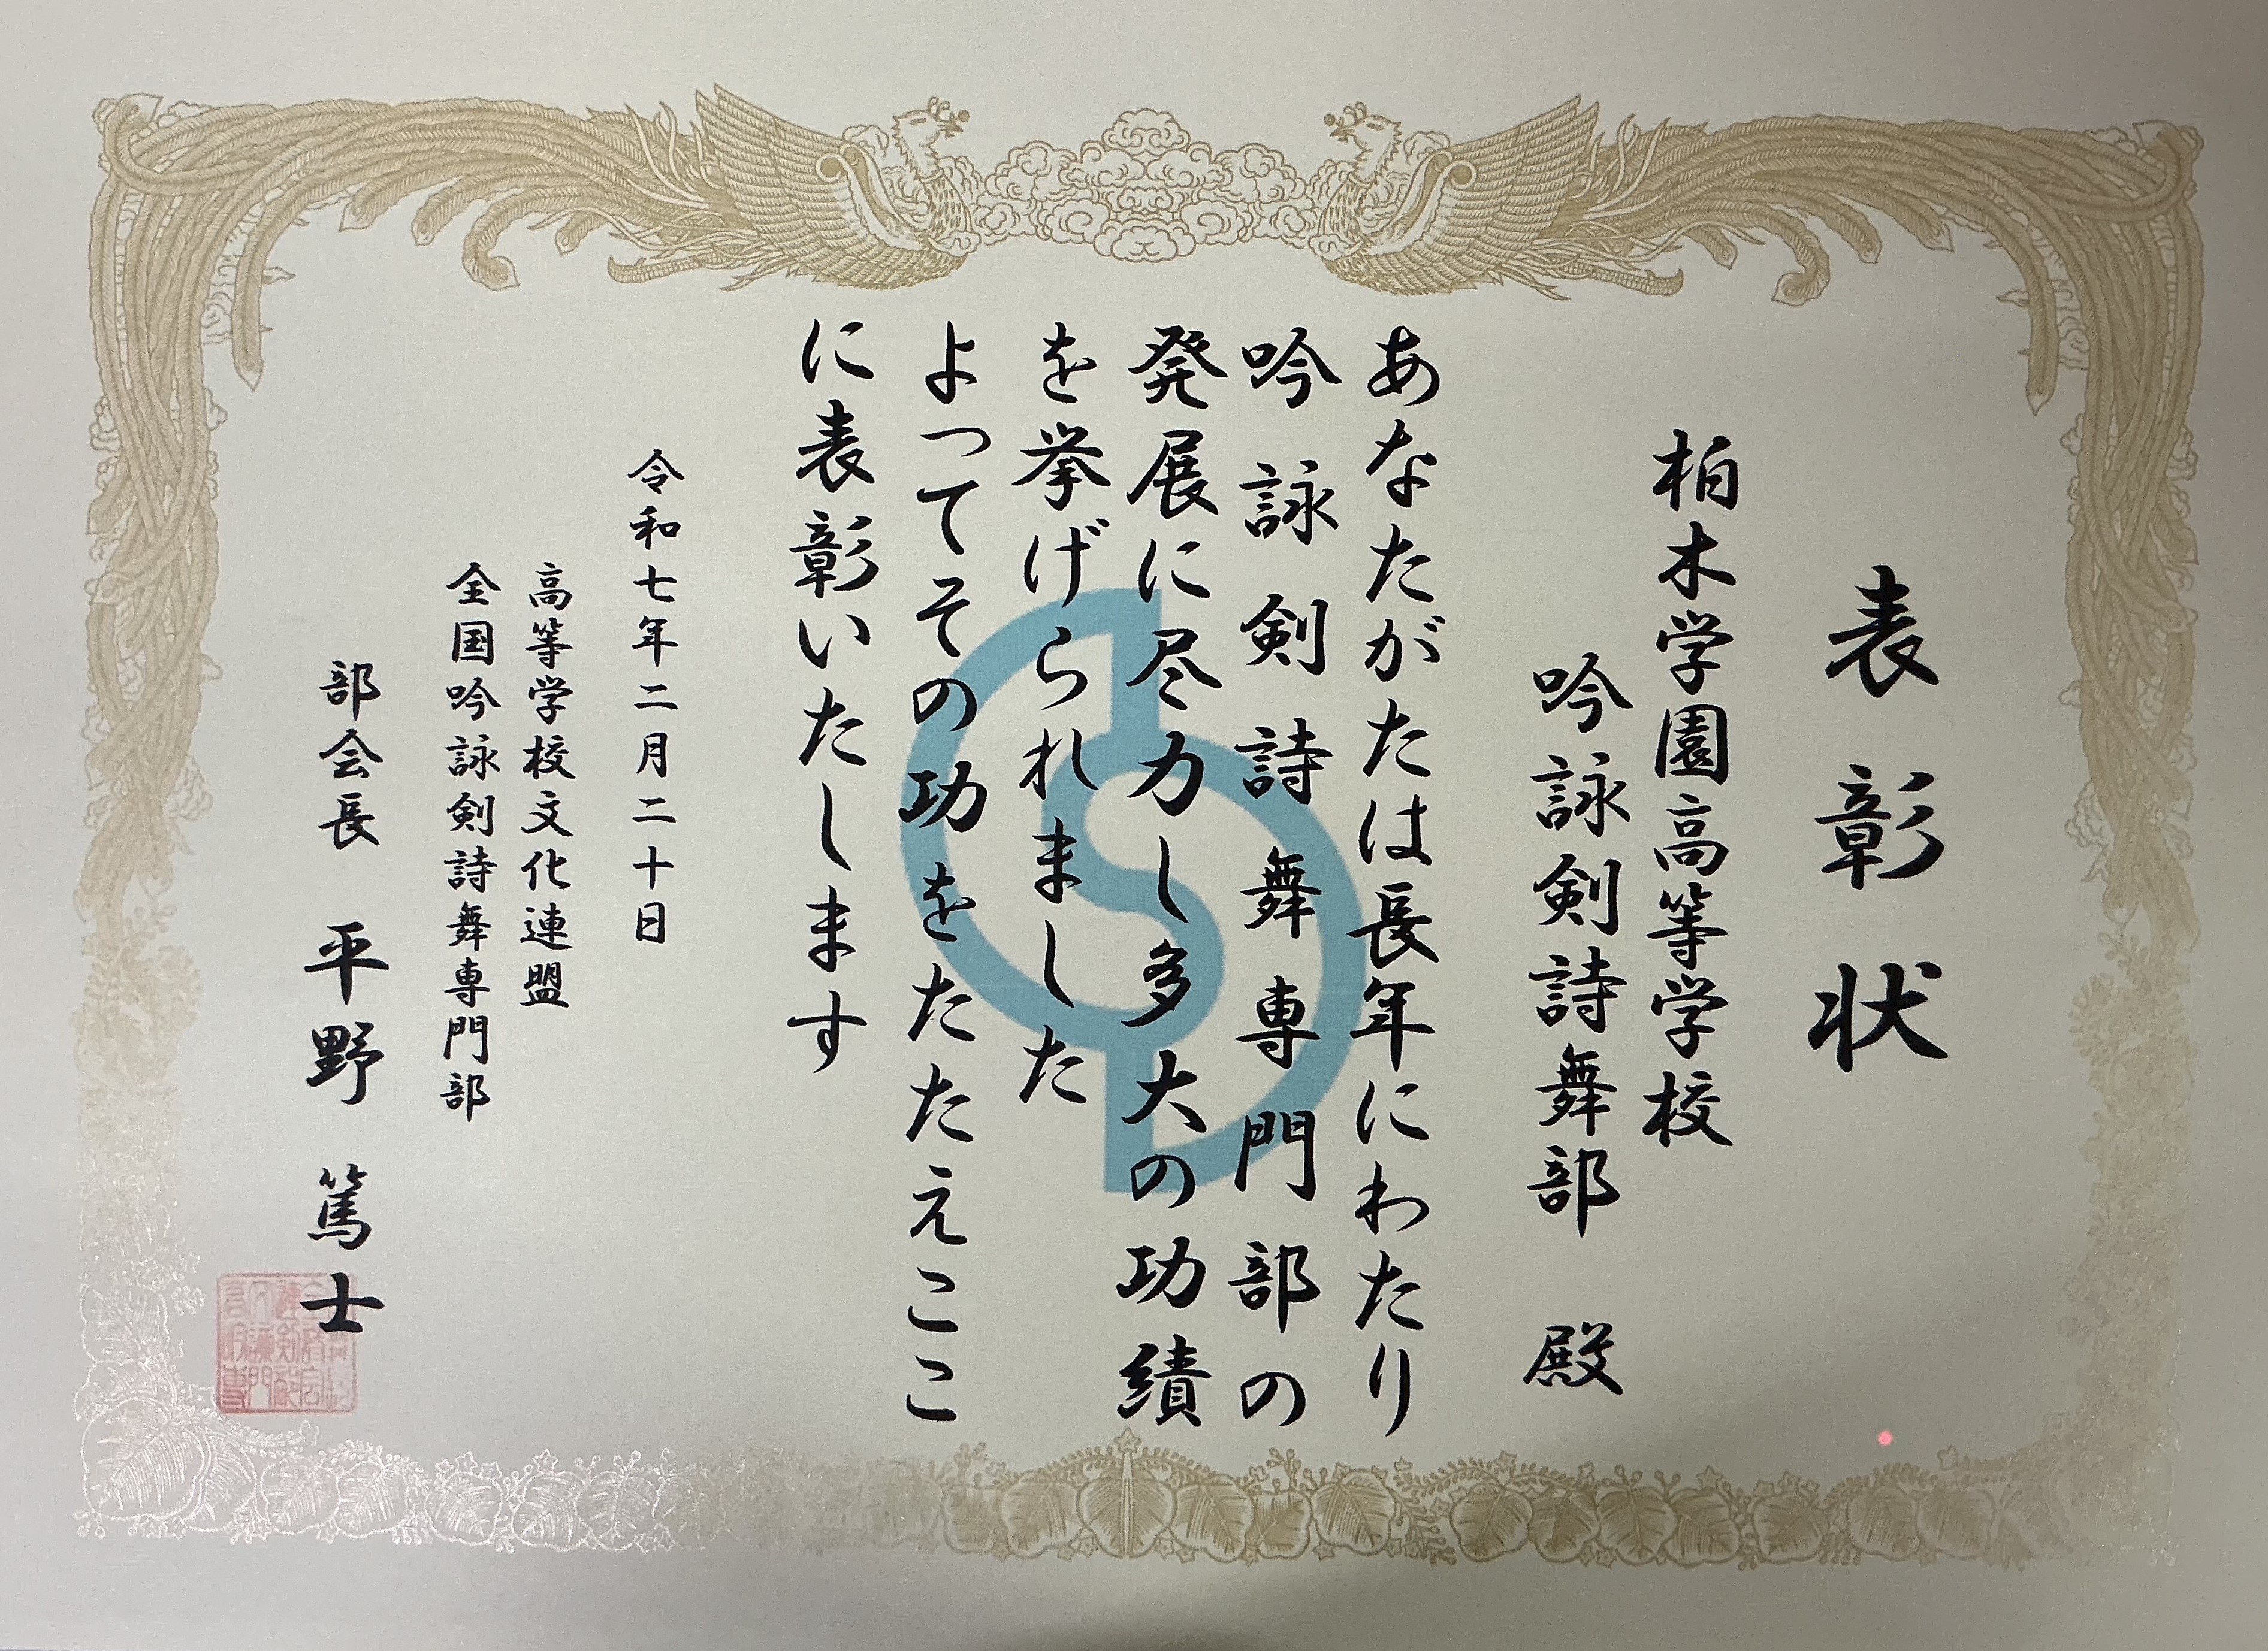 表彰状
柏木学園高等学校
吟詠剣詩舞部 殿
あなたがたは長年にわたり
吟詠剣詩舞専門部の
発展に尽力し多大の功績
を挙げられました
よってその功をたたえここ
に表彰いたします
令和七年二月二十日
高等学校文化連盟
全国吟詠剣詩舞専門部
部会長 平野 篤士